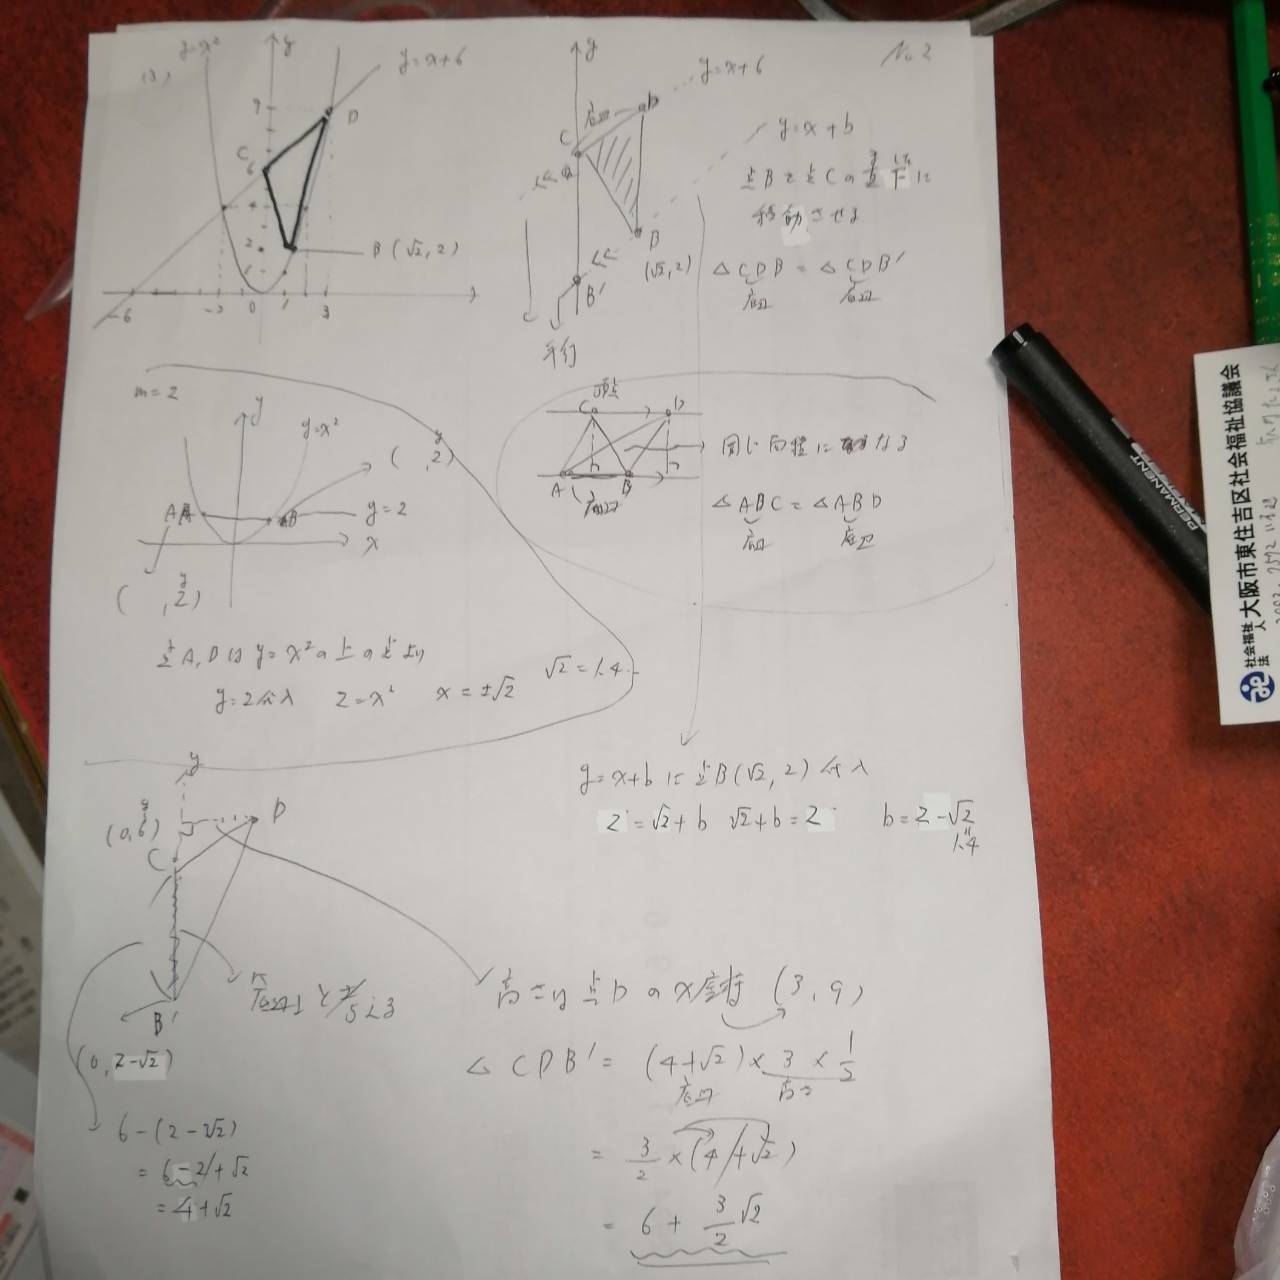 No 2
(3)
y=x²
y
y=x+6
9
D
C
6
4
2
B (√2, 2)
-6
-2
0
1
3
y
y=x+6
底辺
D
C
B
(√2, 2)
B'
平行
y=x+b
点Bを点Cの真下に
移動させる
△CDB = △CDB'
底辺 底辺
m=2
y
y=x²
( , 2)
y
y=2
x
A
B
( , 2)
y
点A, Bは y=x²の上の点より
y=2代入 2=x² x=±√2
√2=1.4
頂点
C
D
A
B
h
h
底辺
同じ面積になる
△ABC=△ABD
底辺 底辺
y=x+bに点B(√2, 2)代入
2=√2+b √2+b=2 b=2-√2
1.4
y
(0, 6)
y
D
C
B'
(0, 2-√2)
6-(2-√2)
=6-2+√2
=4+√2
高さは点Dのx座標 (3, 9)
△CDB'= (4+√2)×3×1/2
底辺 高さ
= 3/2×(4+√2)
= 6+3/2√2
PERMANENT
社会福祉法人 大阪市東住吉区社会福祉協議会